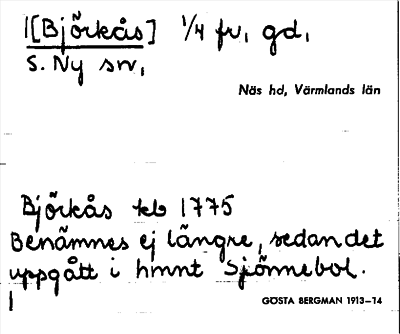 1[Björkås] 1/4 fr, gd,
S. Ny sn,
Näs hd, Värmlands län
Björkås kb 1775
Benämnes ej längre, sedan det
uppgått i hmnt Sjönnebol.
1
GÖSTA BERGMAN 1913–14